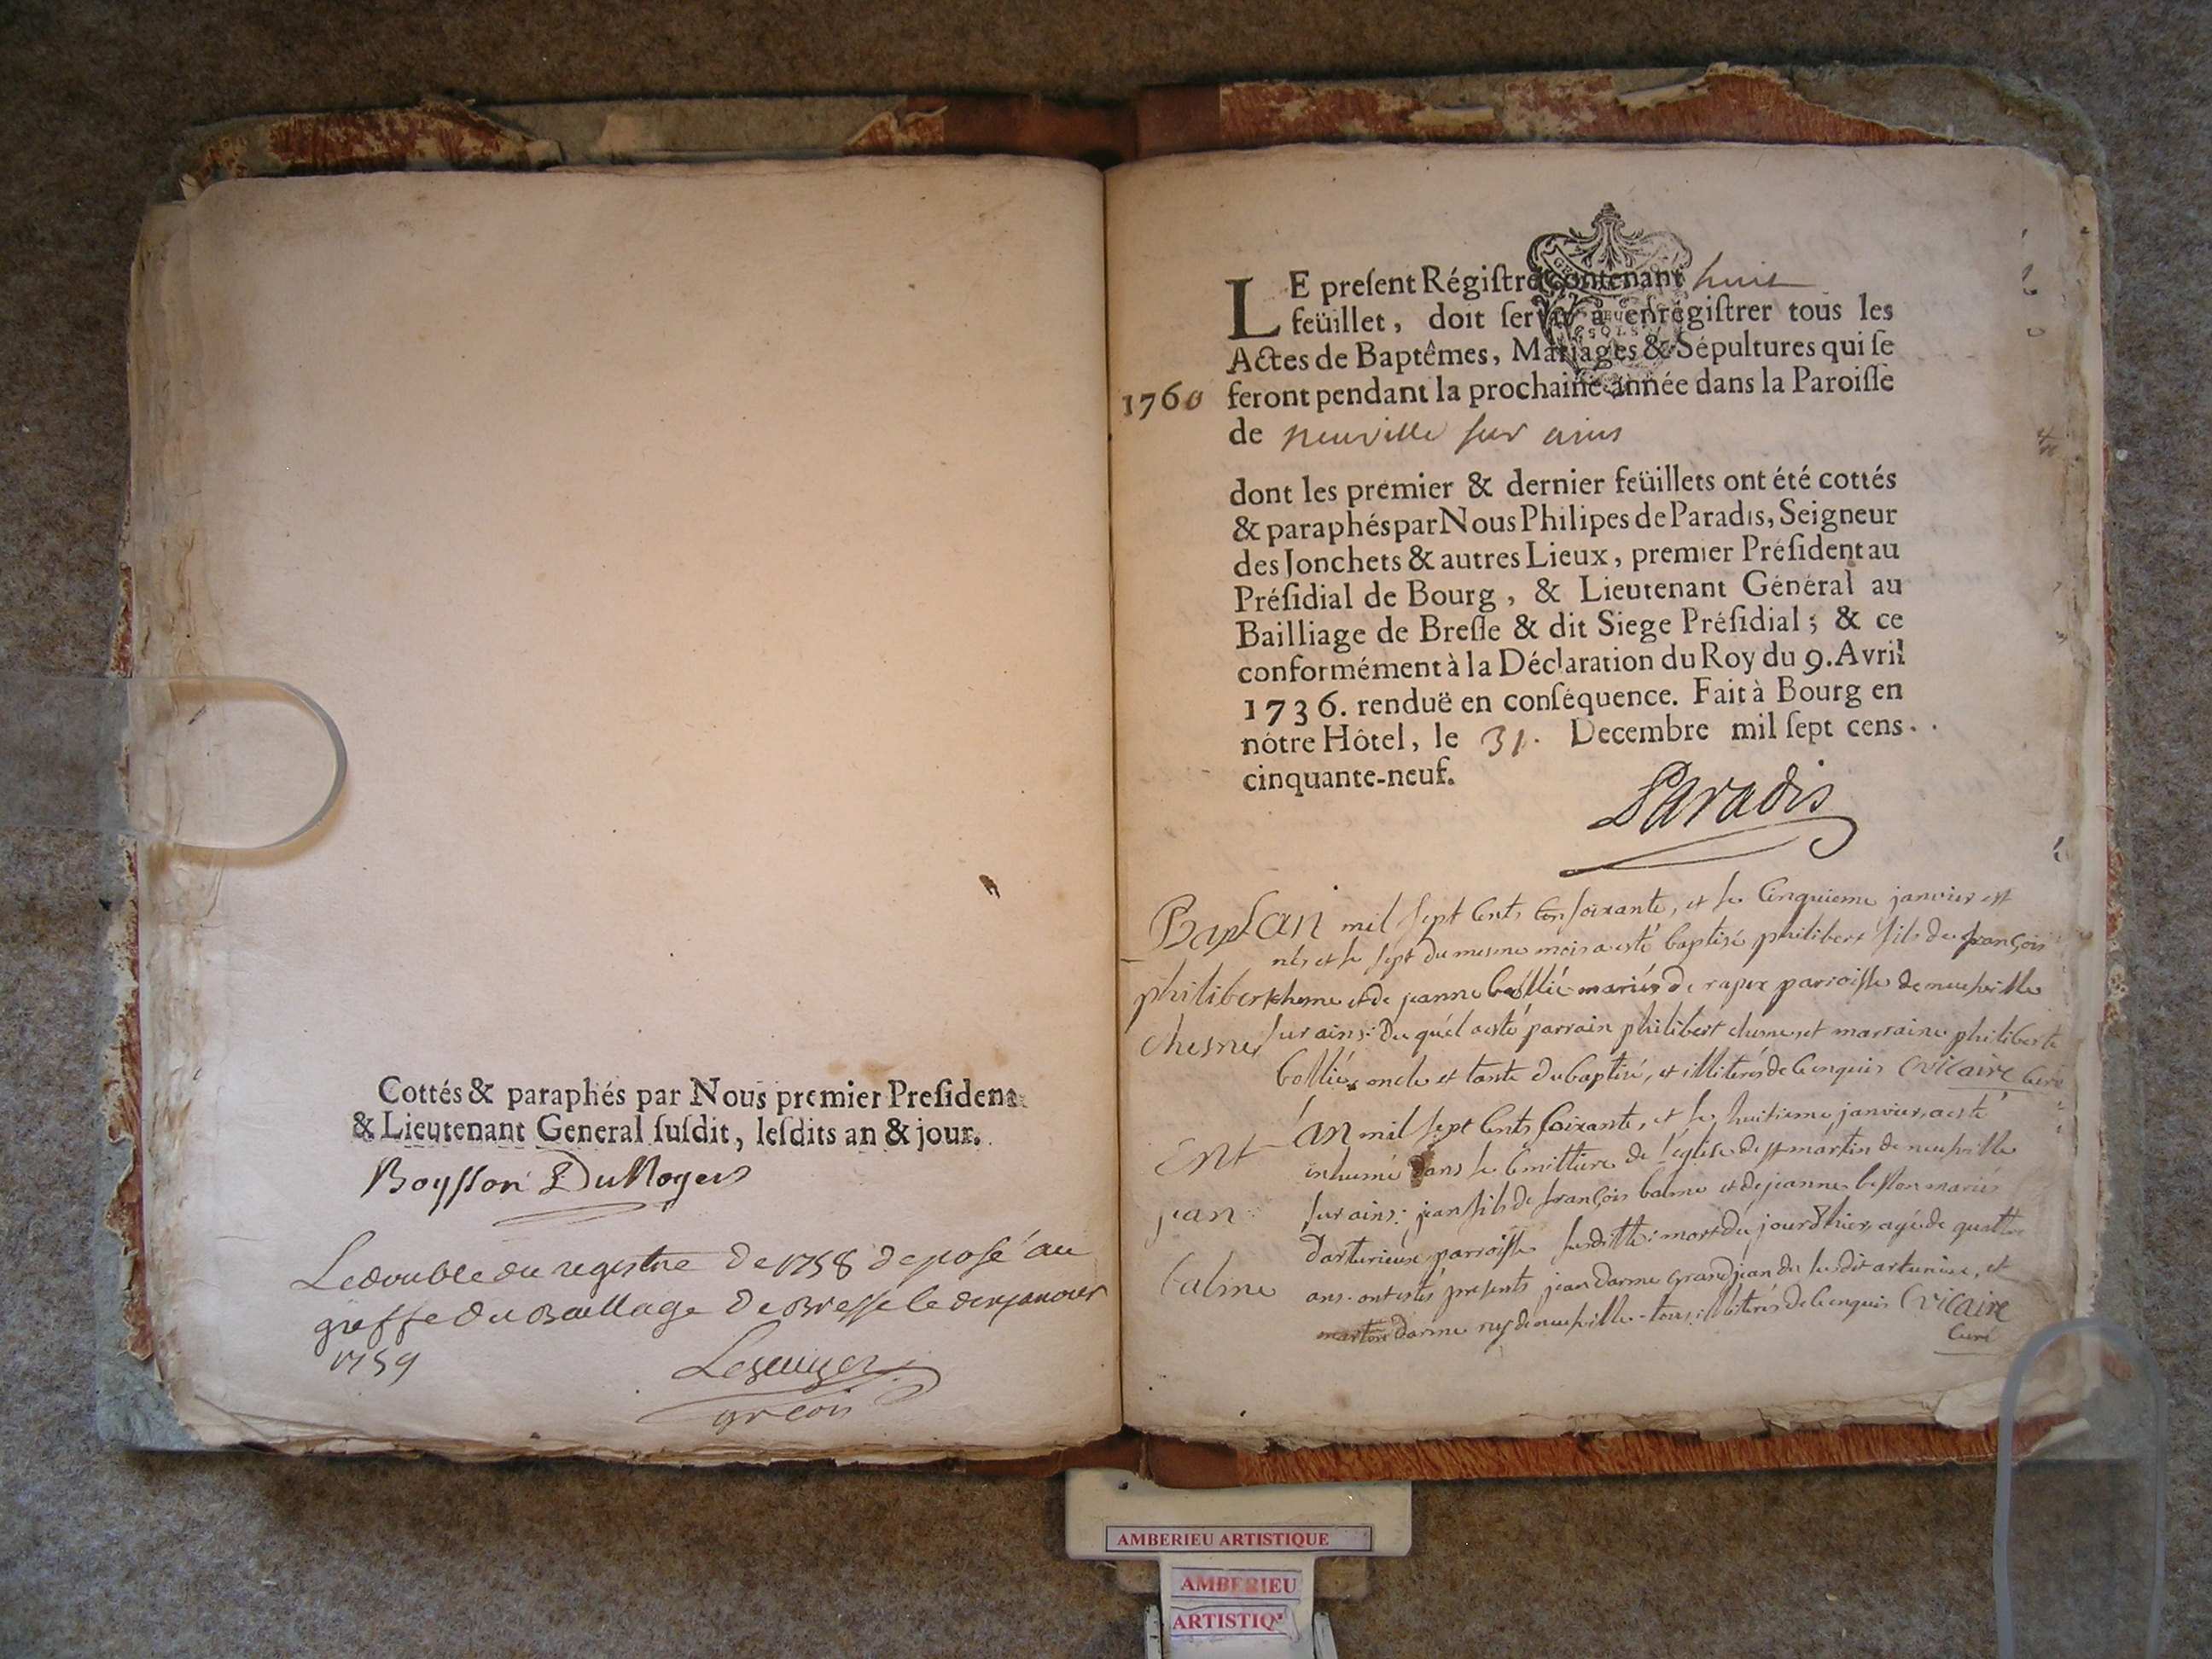 Cottés & paraphés par Nous premier President
& Lieutenant General ſuſdit, leſdits an & jour.
Le double du registre de 1758 deposé au
greffe du Baillage de Bresse le
1759
LE preſent Régiſtre contenant huit
feüillet, doit ſervir à enrégiſtrer tous les
Actes de Baptêmes, Mariages & Sépultures qui ſe
1760 feront pendant la prochaine année dans la Paroiſſe
de neuville sur ains
dont les premier & dernier feüillets ont été cottés
& paraphés par Nous Philipes de Paradis, Seigneur
des Jonchets & autres Lieux, premier Préſident au
Préſidial de Bourg, & Lieutenant Général au
Bailliage de Breſſe & dit Siege Préſidial; & ce
conformément à la Déclaration du Roy du 9. Avril
1736. renduë en conſéquence. Fait à Bourg en
nôtre Hôtel, le 31. Decembre mil ſept cens
cinquante-neuf.
Paradis
Bapt L'an mil sept cents soixante, et le cinquieme janvier est
nés et le sept du mesme mois a esté baptisé philibert fils de françois
philibert chesne et de jeanne mariés de rapex parroisse de neufville
chesne sur ains: du quel a esté parrain philibert chesne, et marraine philiberte
oncle et tante du baptisé, et illiterés de ce enquis Vicaire curé
Ent L'an mil sept cents soixante, et le huitieme janvier, a esté
inhumé dans le cimittiere de l'église de st martin de neufville
jean sur ains: jean fils de françois balme et de jeanne mariés
parroisse susditte: mort du jour d'hier, agé de quattre
balme ans. ont estés présents jean darme grandjean du susdit et
darme de neufville tous illiterés de ce enquis Vicaire
curé
AMBERIEU ARTISTIQUE
AMBERIEU
ARTISTIQ